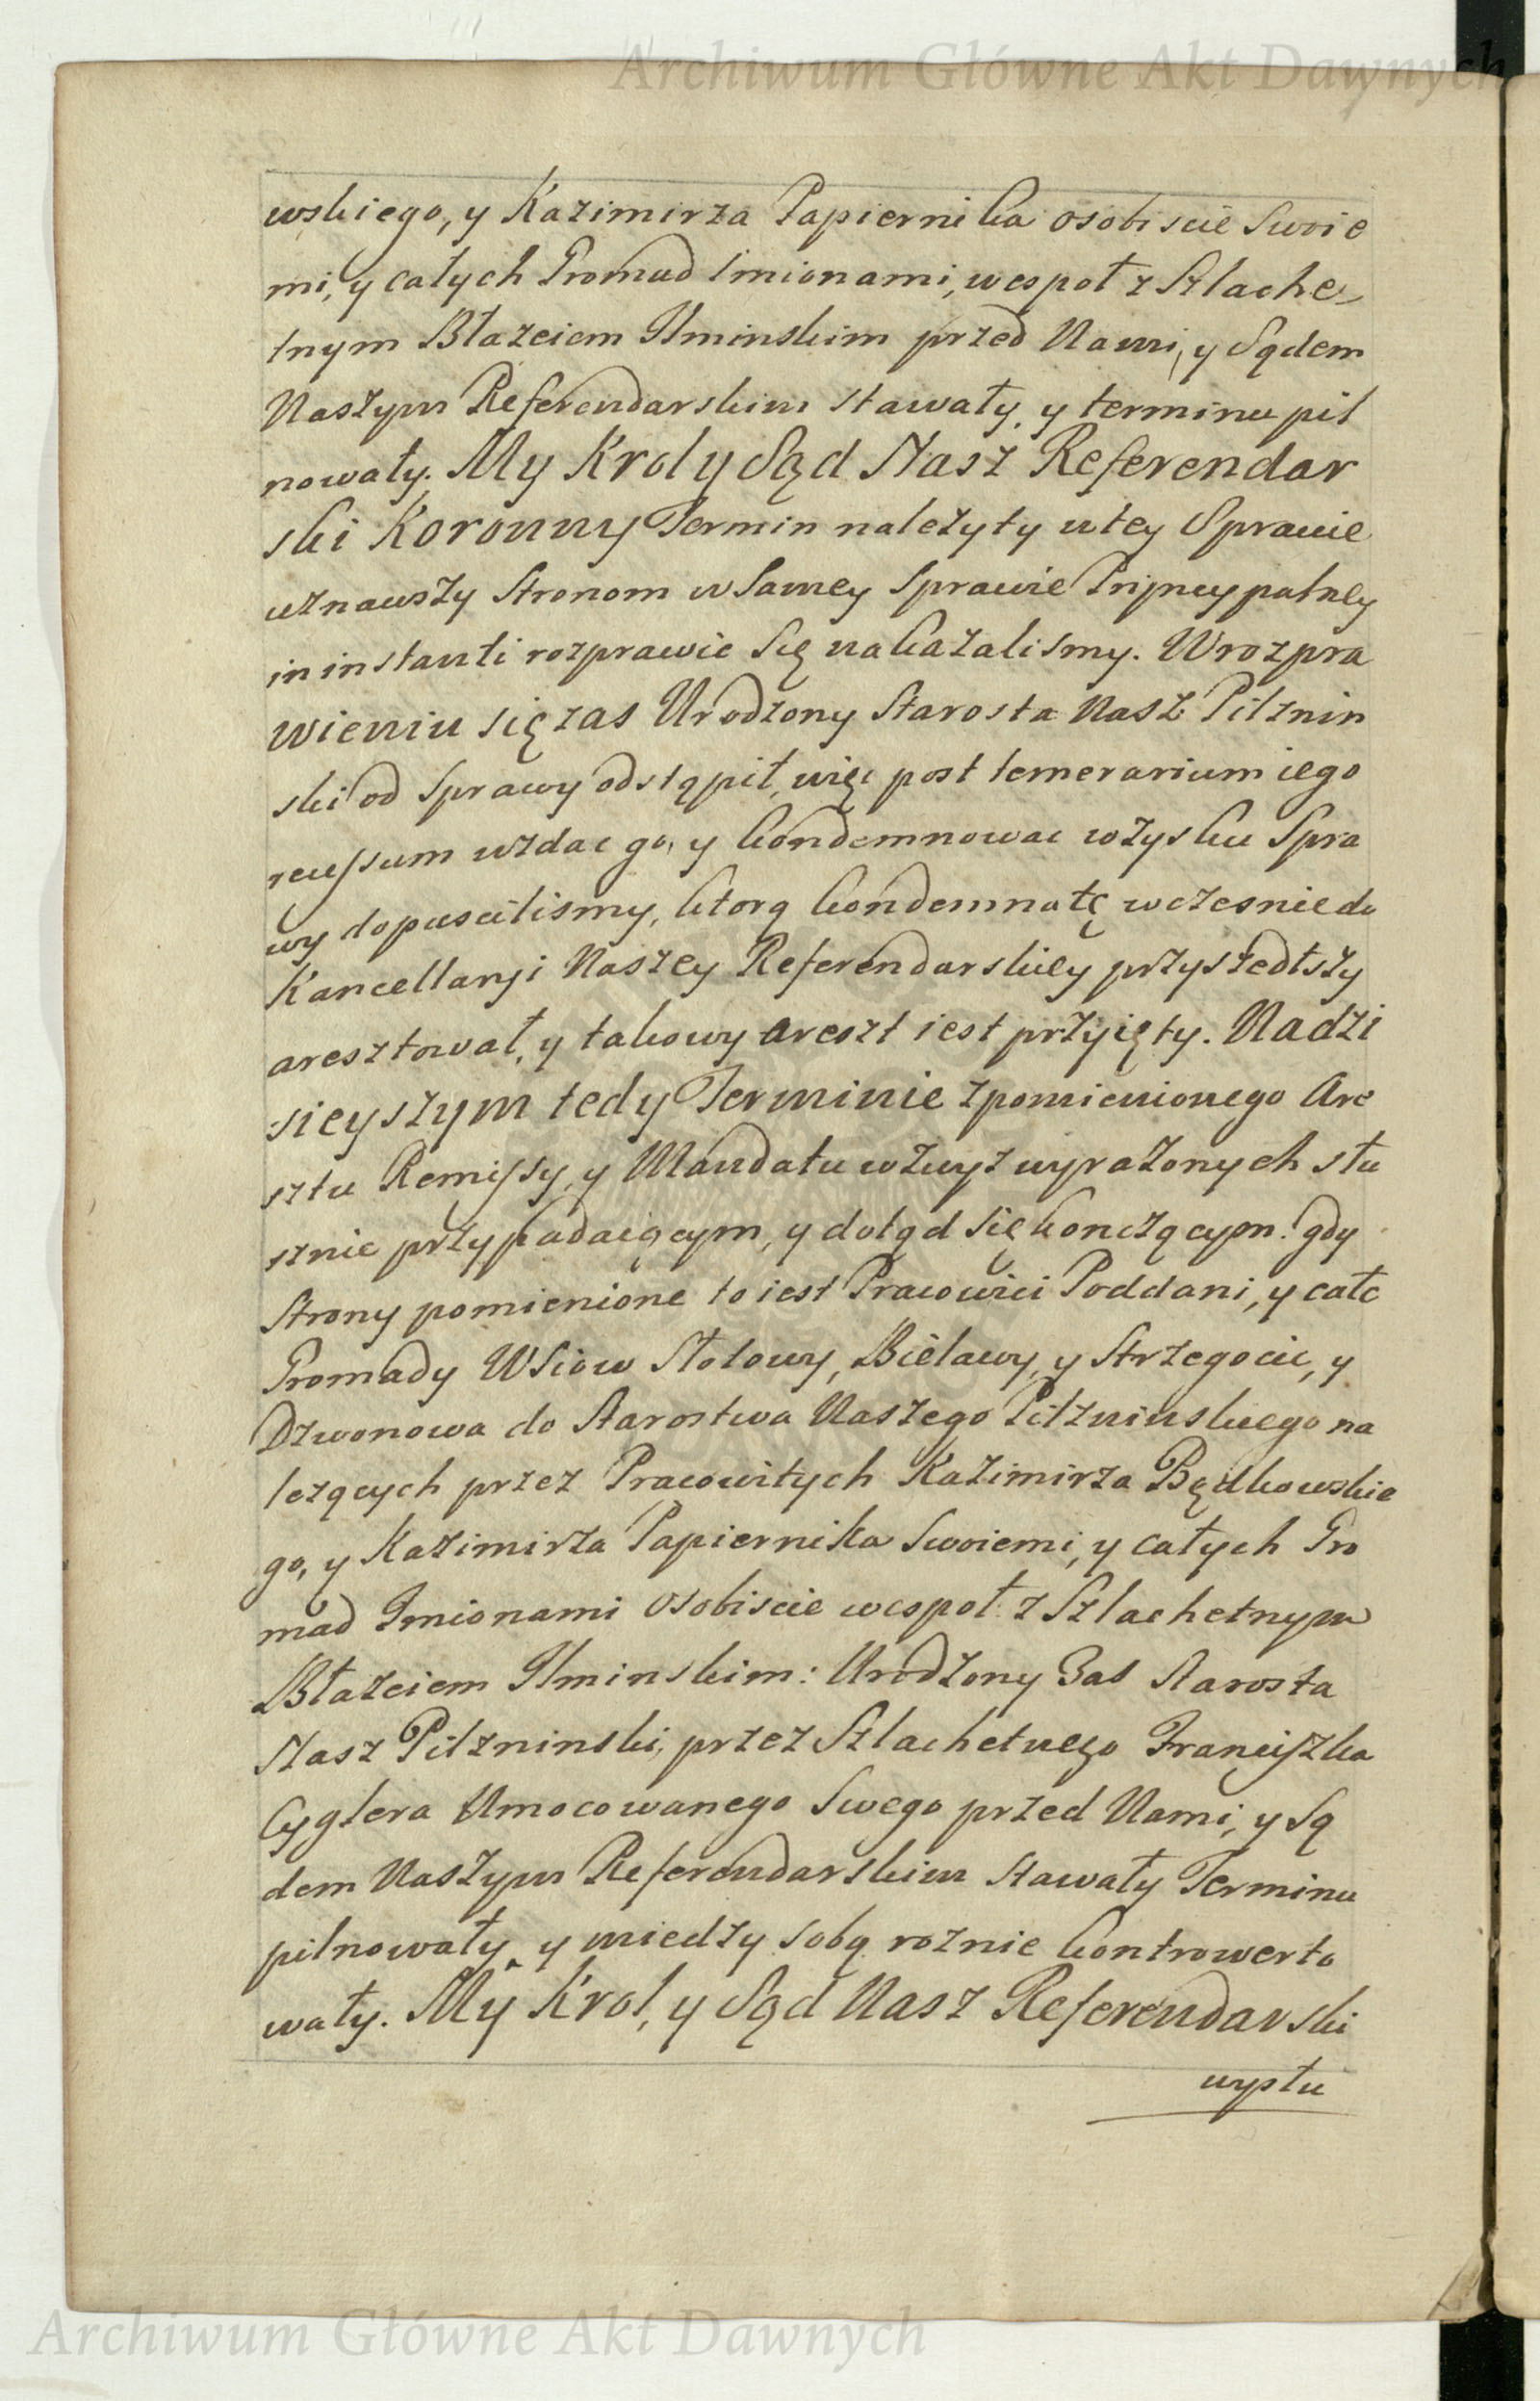 Archiwum Główne Akt Dawnych
wskiego, y Kazimirza Papiernika osobiscie Swoie
mi, y całych Gromad Imionami, wespoł z Szlache
tnym Błazeiem Ilminskim przed Nami, y Sądem
Naszym Referendarskim stawały, y terminu pil
nowały. My Krol y Sąd Nasz Referendar
ski Koronny Termin należyty w tey Sprawie
uznawszy Stronom w Samey Sprawie Pryncypalney
in instanti rozprawic Się nakazalismy. W rozpra
wieniu się zas Urodzony Starosta Nasz Pilznin
ski od Sprawy odstąpił, więc post temerarium iego
recessum wzdac go, y kondemnowac w zysku Spra
wy dopuscilismy, ktorą kondemnatę wczesnie do
Kancellaryi Naszey Referendarskiey przyszedłszy
aresztował, y takowy areszt iest przyięty. Na dzi
sieyszym tedy Terminie z pomienionego Are
sztu Remissy, y Mandatu wzwyż wyrażonych słu
sznie przypadaiącym, y dotąd się kończącym. gdy
Strony pomienione to iest Pracowici Poddani, y całe
Gromady Wsiow Słotowy, Bielawy, y Strzegocic, y
Dzwonowa do Starostwa Naszego Pilzninskiego na
leżących przez Pracowitych Kazimirza Będkowskie
go, y Kazimirza Papiernika Swoiemi, y całych Gro
mad Imionami osobiscie wespoł z Szlachetnym
Błazeiem Ilminskim: Urodzony Zas Starosta
Nasz Pilzninski, przez Szlachetnego Franciszka
Cyglera Umocowanego Swego przed Nami, y Są
dem Naszym Referendarskim Stawały Terminu
pilnowały y miedzy sobą roznie kontrowerto
wały. My Krol, y Sąd Nasz Referendarski
wysłu
Archiwum Główne Akt Dawnych